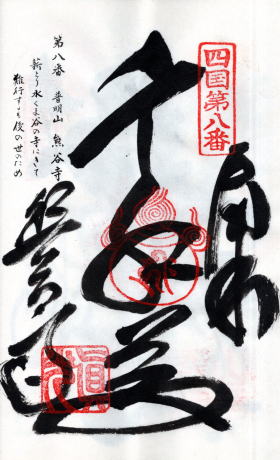 四国第八番
奉納
千手大士
熊谷寺
第八番 普明山 熊谷寺
薪とり水くま谷の寺にきて
難行するも後の世のため